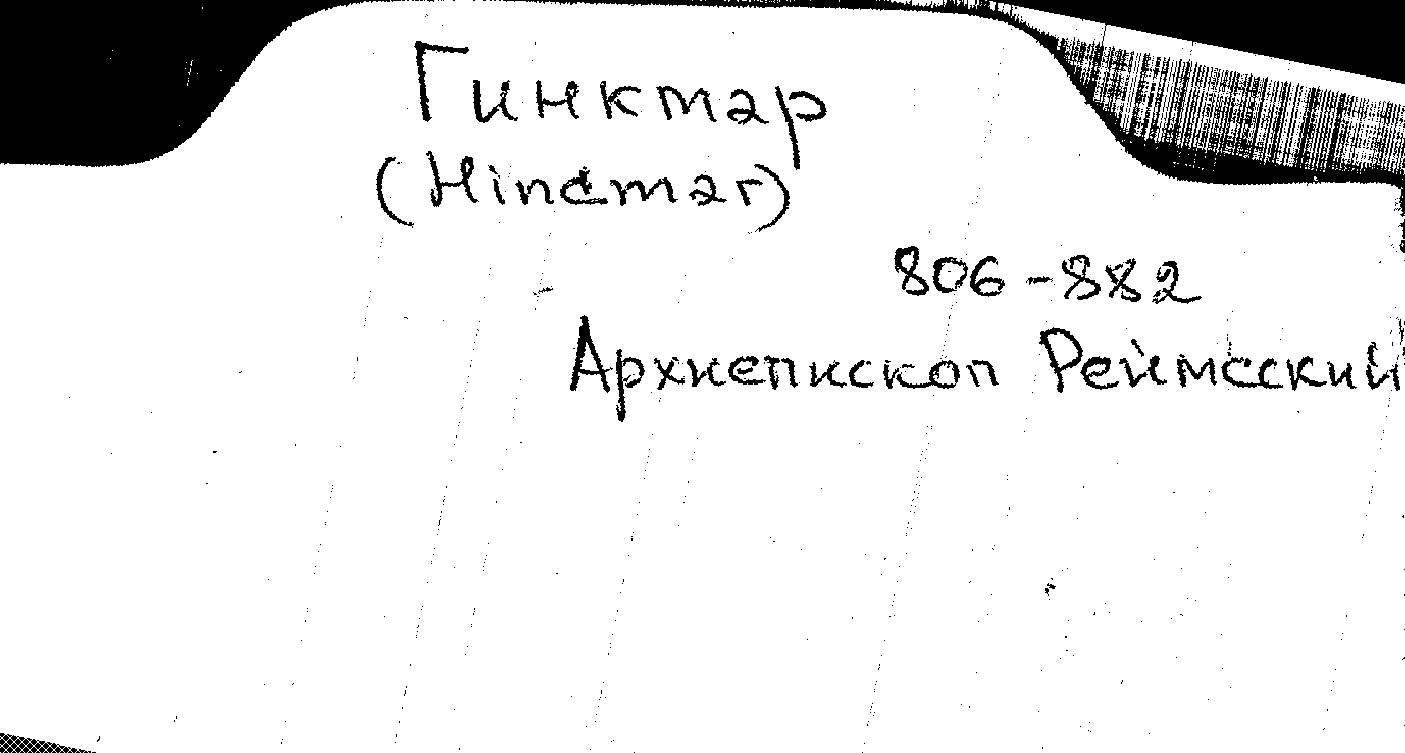 Гинктар
(Hincmar)
806-882
Архиепископ Реймсский